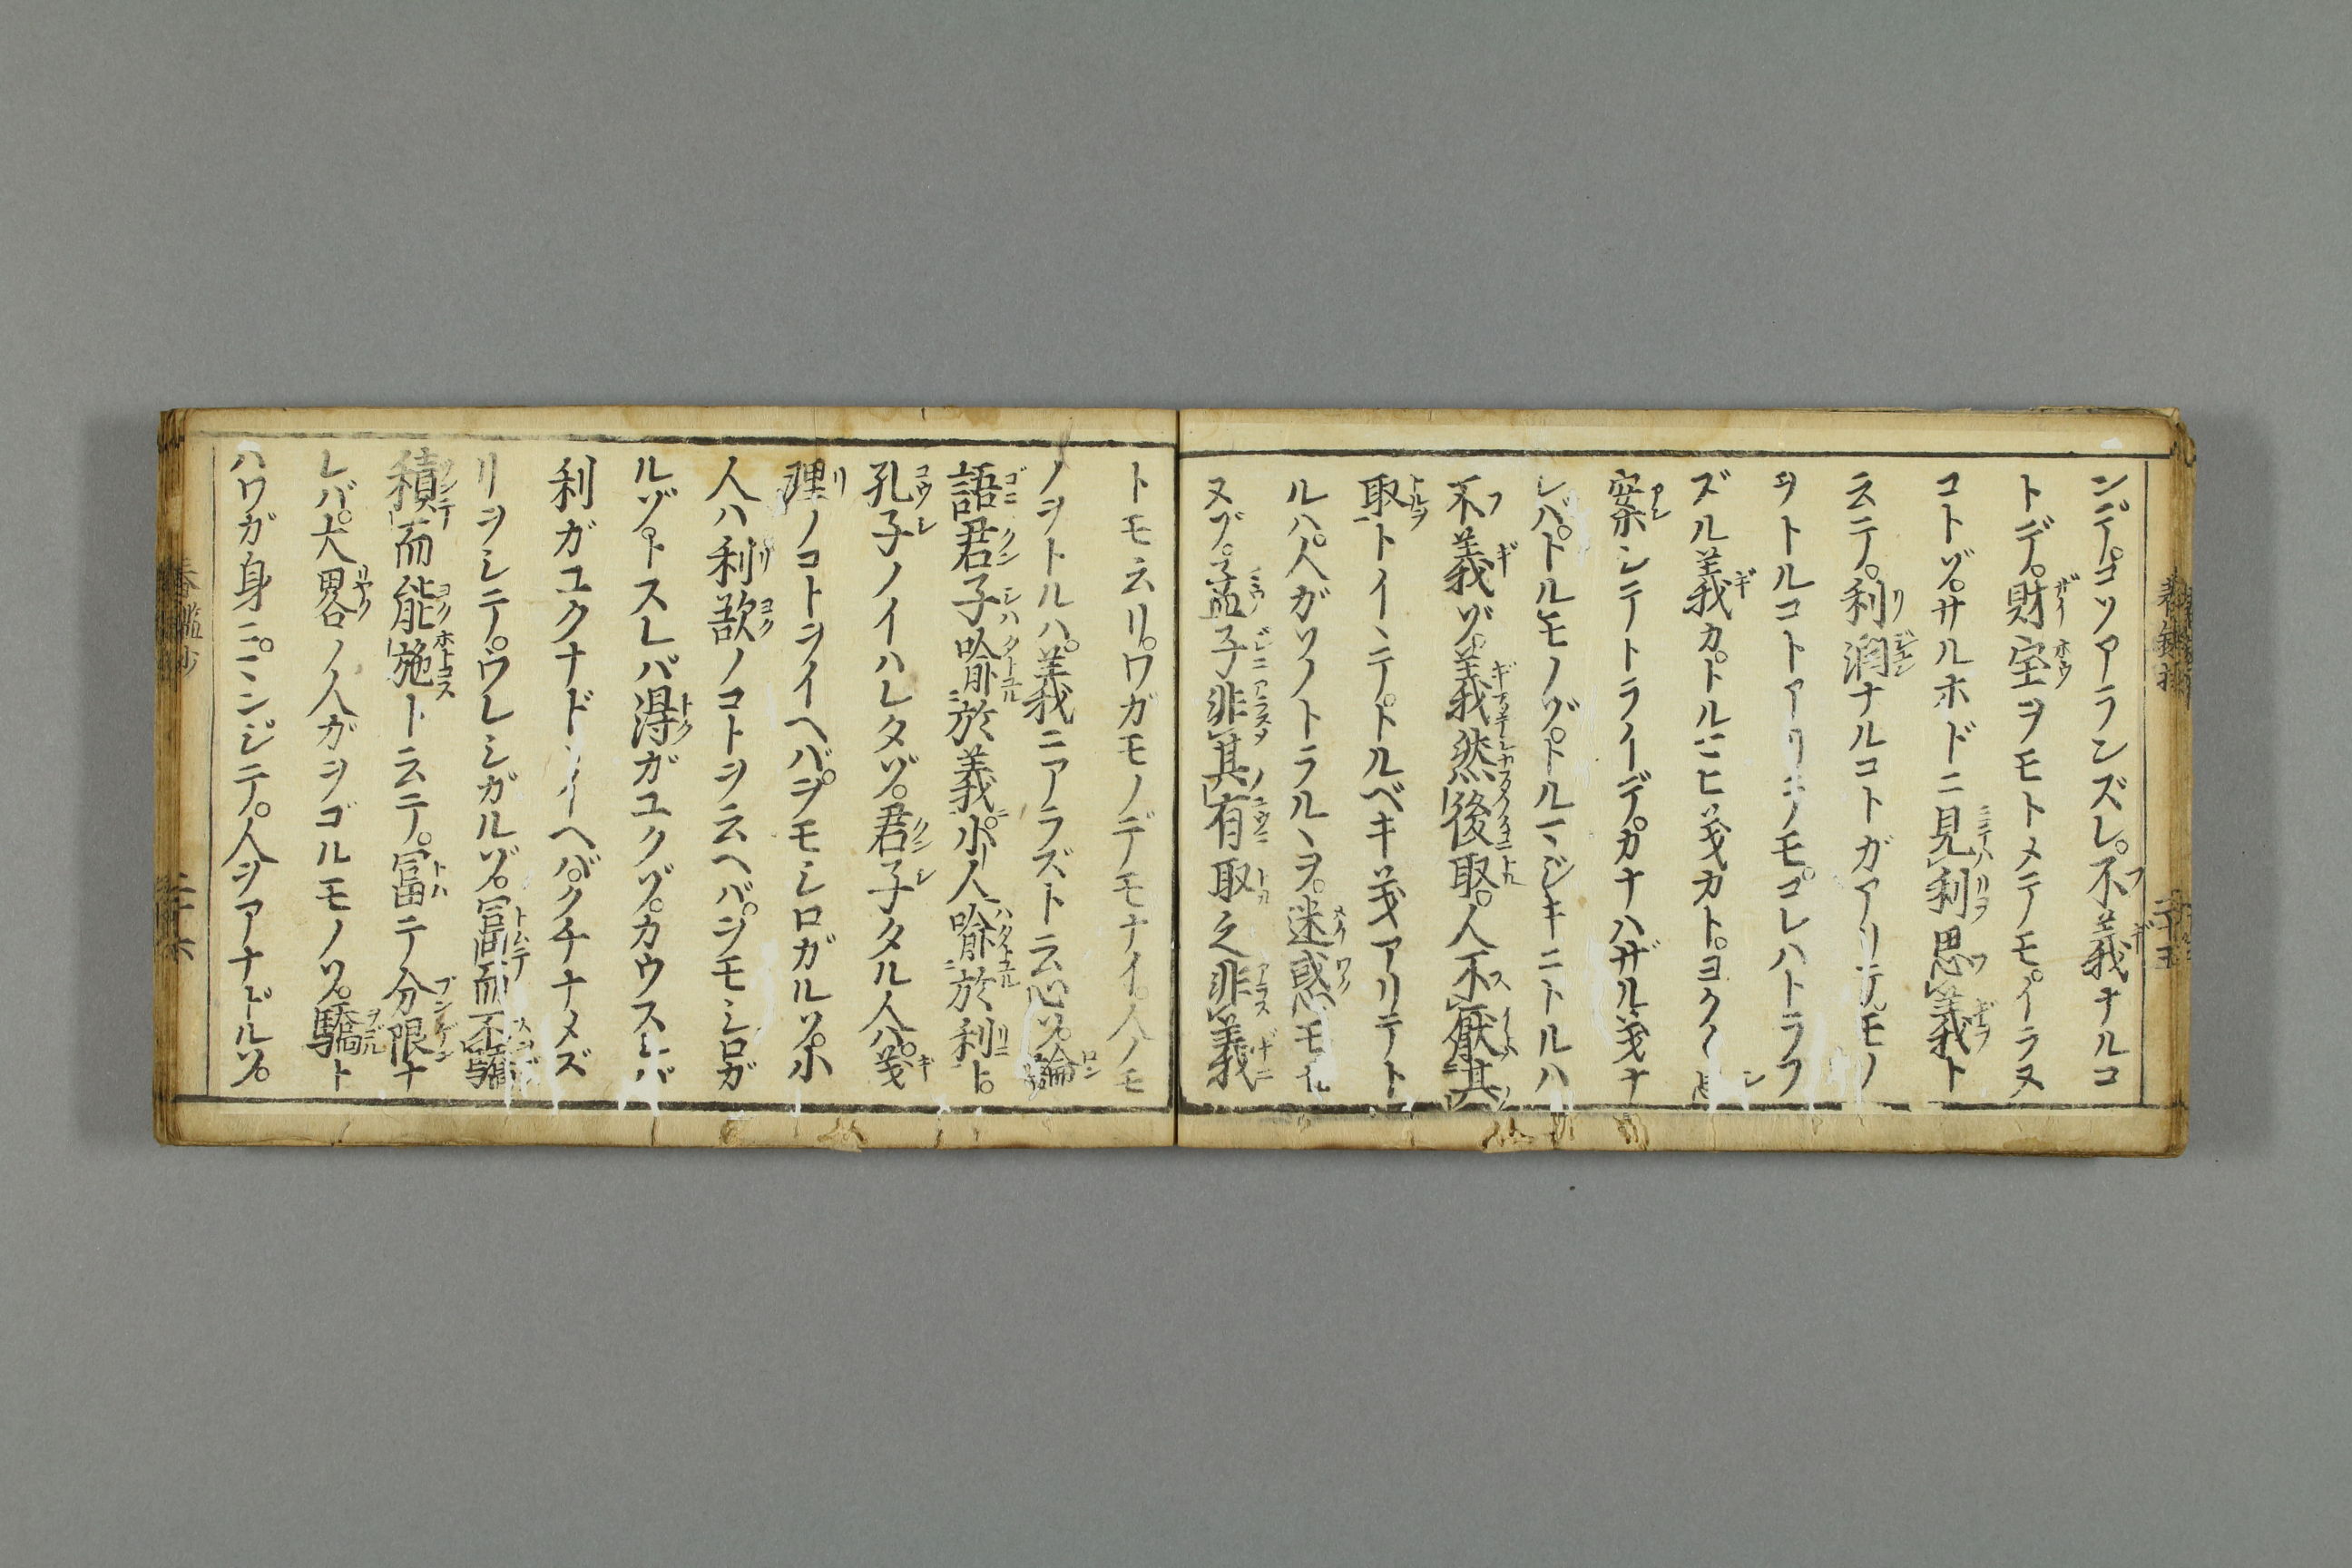 ンデ。コソアランズレ。不義ナルコ
トデ。財宝ヲモトメテノモ。イラヌ
コトゾ。サルホドニ見利思義ト
云テ。利潤ナルコトガアリテ。モノ
ヲトルコトアリキノモ。コレハトラフ
ズル義カ。トルマヒ義カト。ヨク
案シテトライデ。カナハザル義ナ
レバ。トルモノゾ。トルマジキニトルハ
不義ゾ。義然後取。人不厭其
取トイヽテ。トルベキ義アリテト
ルハ。人ガソノトラルヽヲ。迷惑モセ
ヌゾ。孟子非其有取之非義
トモ云リ。ワガモノデモナイ。人ノモ
ノヲトルハ。義ニアラズト云心ゾ。論
語君子喩於義。小人喩於利ト。
孔子ノイハレタゾ。君子タル人ハ。義
理ノコトヲイヘバ。ヲモシロガルソ。小
人ハ利欲ノコトヲ云ヘバ。ヲモシロガ
ルゾ。トスレバ得ガユクゾ。カウスレバ
利ガユクナドヽイヘバ。クチナメズ
リヲシテ。ウレシガルゾ。冨而不驕
積而能施ト云テ。冨テ分限ナ
レバ。大畧ノ人ガヲゴルモノソ。驕ト
ハワガ身ニ。マンジテ。人ヲアナドルソ。
春鑑抄
二十六